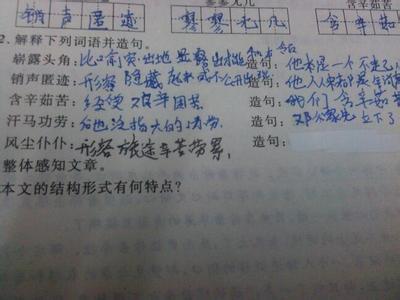 销声匿迹 寥寥无几 含辛茹苦
2.解释下列词语并造句。
崭露头角:比喻突出地显露出才能和本领 造句:他本是一个不
销声匿迹:形容隐藏起来或不公开出现 造句:他
含辛茹苦:经受艰辛困苦 造句:我们含辛茹苦
汗马功劳:后泛指大的功劳 造句:邓 立下了
风尘仆仆:形容旅途辛苦劳累. 造句:
整体感知文章。
本文的结构形式有何特点?